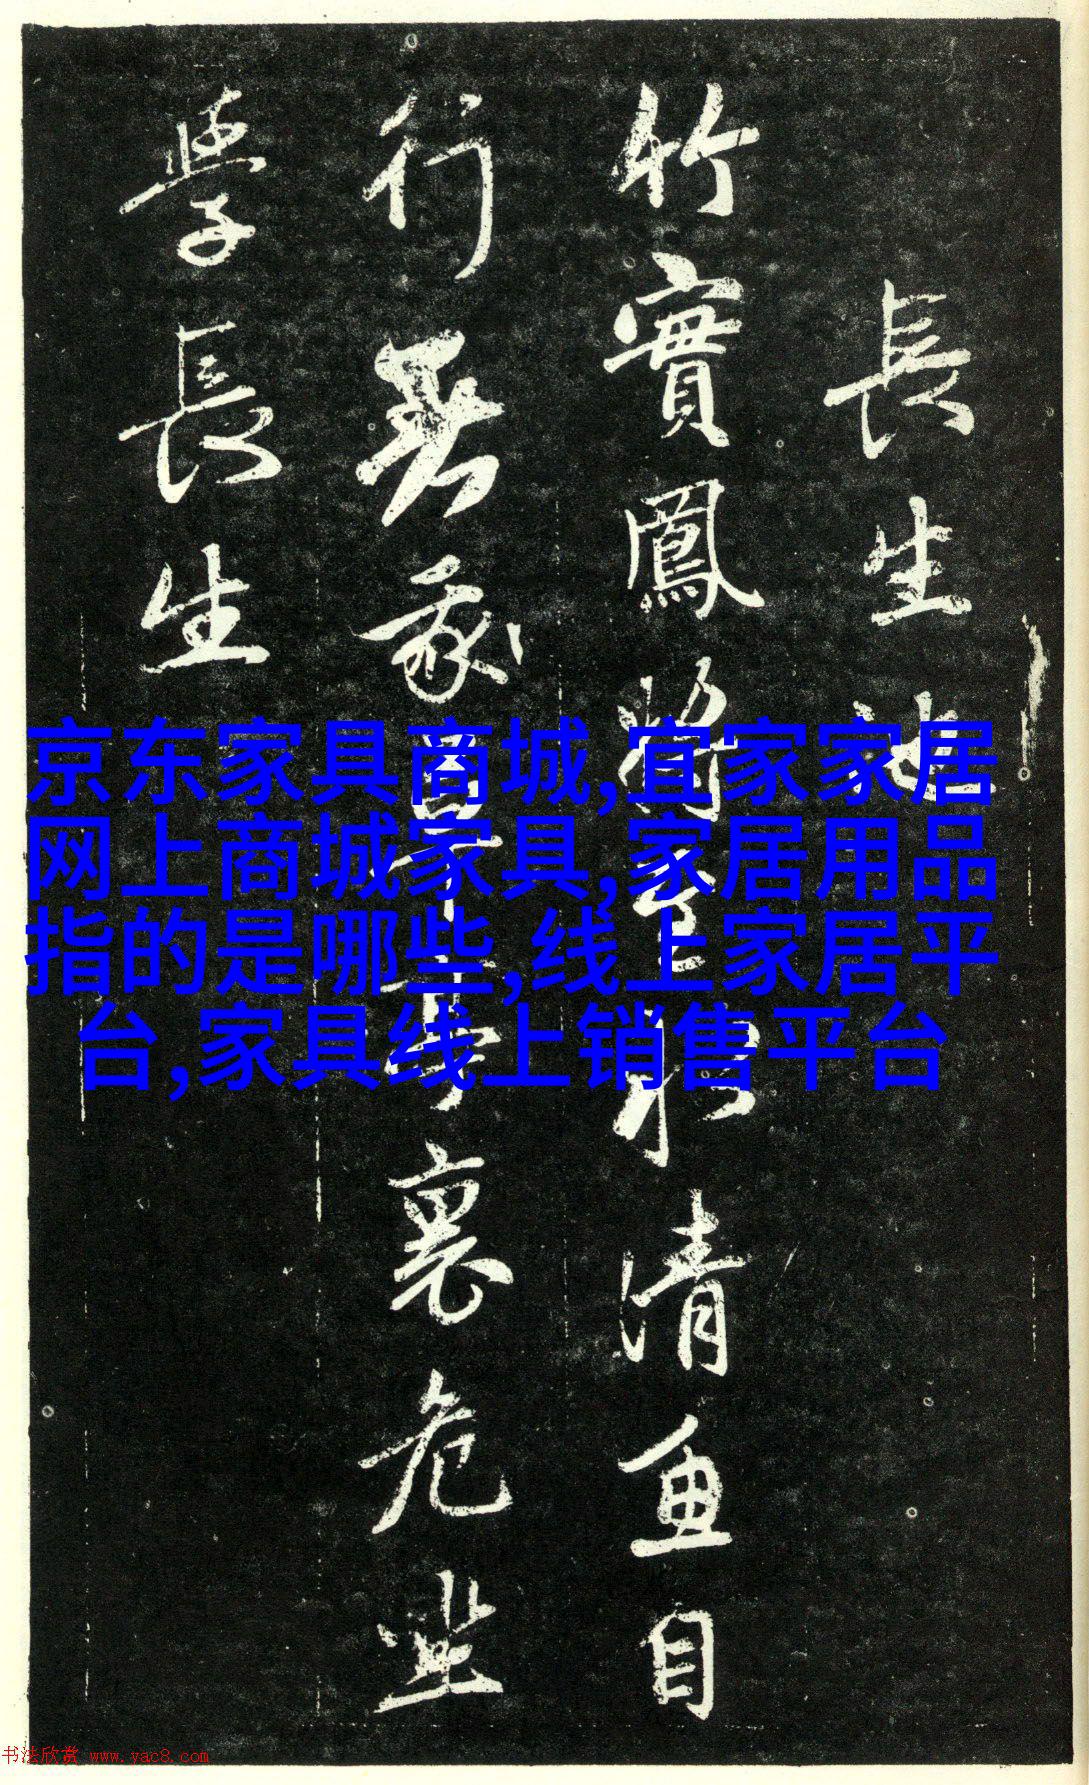 長生池
竹實鳳將至水清魚自
行 裏危坐
學長生
京东家具商城,宜家家居
网上商城家具,家居用品
指的是哪些,线上家居平
台,家具线上销售平台
书法欣赏 www.yac8.com